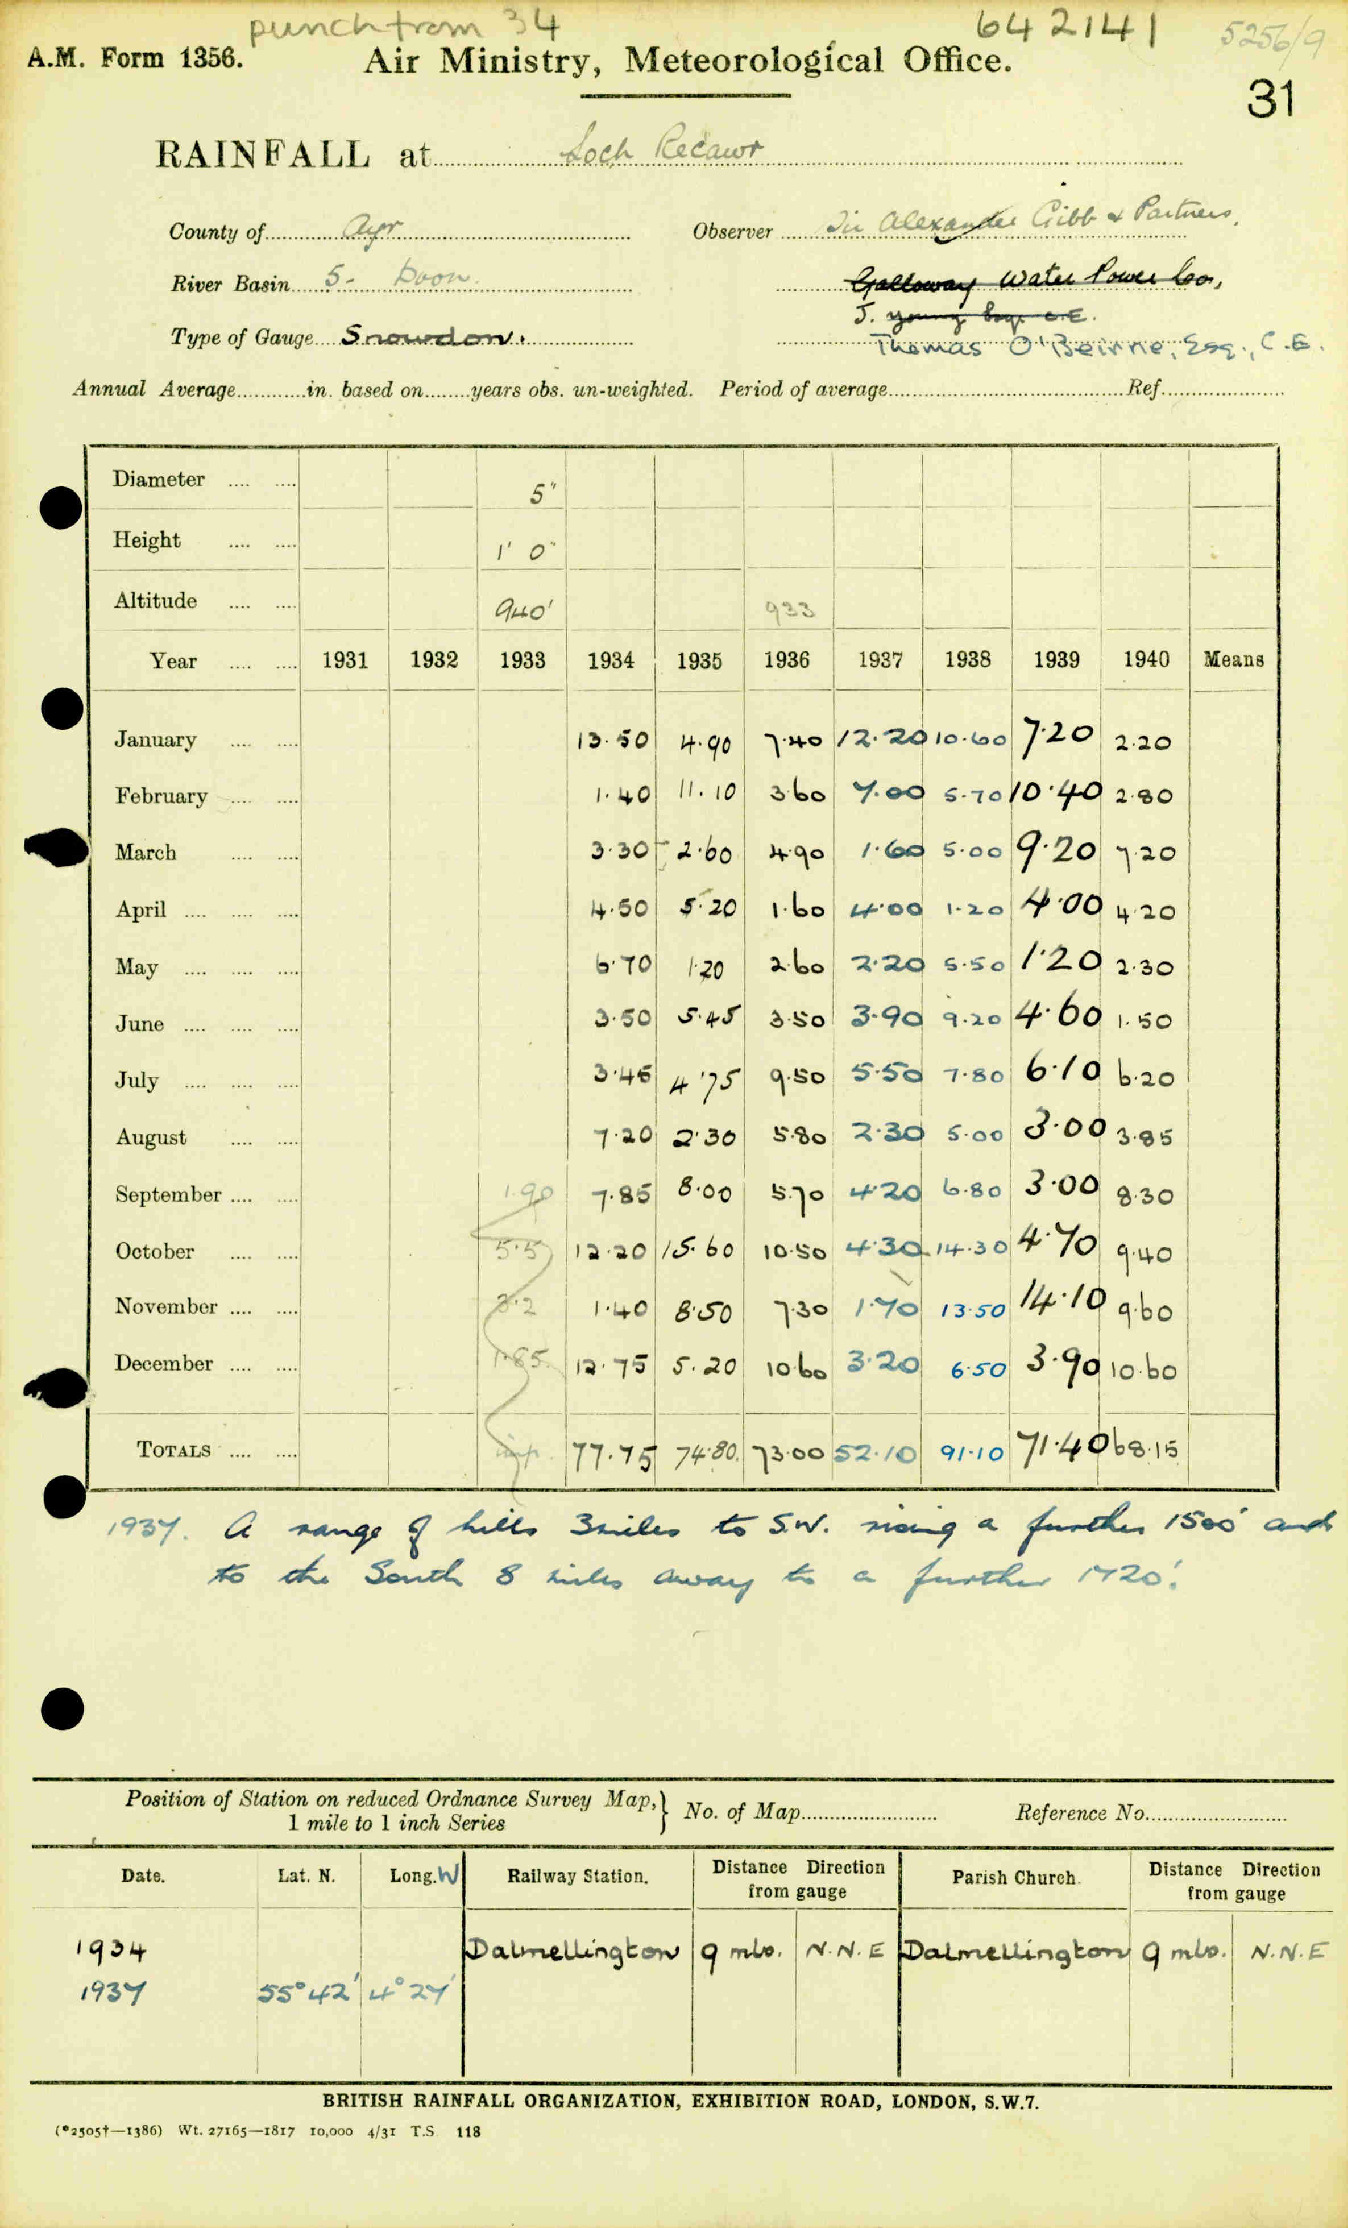 punch from 34
642141
5256/9
A.M. Form 1356.
Air Ministry, Meteorological Office.
31
RAINFALL at Loch Recawr
County of Ayr
Observer Sir Alexander Gibb & Partners.
River Basin 5- Doon.
Galloway Water Power Co.,
J. Young Esqr C.E.
Type of Gauge Snowdon.
Thomas O'Beirne, Esq., C.E.
Annual Average in. based on years obs. un-weighted. Period of average Ref.
Diameter 5"
Height 1' 0"
Altitude 940' 933
Year 1931 1932 1933 1934 1935 1936 1937 1938 1939 1940 Means
January 13.50 4.90 7.40 12.20 10.60 7.20 2.20
February 1.40 11.10 3.60 7.00 5.70 10.40 2.80
March 3.30 2.60 4.90 1.60 5.00 9.20 7.20
April 4.50 5.20 1.60 4.00 1.20 4.00 4.20
May 6.70 1.20 2.60 2.20 5.50 1.20 2.30
June 3.50 5.45 3.50 3.90 9.20 4.60 1.50
July 3.45 4.75 9.50 5.50 7.80 6.10 6.20
August 7.20 2.30 5.80 2.30 5.00 3.00 3.85
September 1.90 7.85 8.00 5.70 4.20 6.80 3.00 8.30
October 5.5 12.20 15.60 10.50 4.30 14.30 4.70 9.40
November 3.2 1.40 8.50 7.30 1.70 13.50 14.10 9.60
December 1.85 12.75 5.20 10.60 3.20 6.50 3.90 10.60
TOTALS imp. 77.75 74.80 73.00 52.10 91.10 71.40 68.15
1937. A range of hills 3 miles to S.W. rising a further 1500' and
to the South 8 miles away to a further 1720'.
Position of Station on reduced Ordnance Survey Map,
1 mile to 1 inch Series
No. of Map
Reference No.
Date. Lat. N. Long. W Railway Station. Distance Direction from gauge Parish Church. Distance Direction from gauge
1934 Dalmellington 9 mls. N.N.E Dalmellington 9 mls. N.N.E
1937 55° 42' 4° 27'
BRITISH RAINFALL ORGANIZATION, EXHIBITION ROAD, LONDON, S.W.7.
(*2505†—1386) Wt. 27165—1817 10,000 4/31 T.S 118